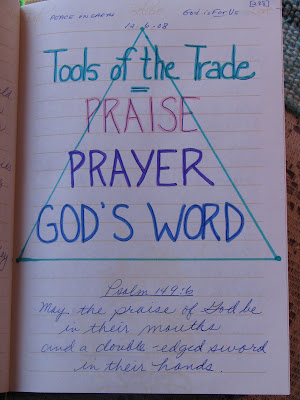 PEACE ON EARTH
God is For Us
12.6.08
Tools of the Trade
=
PRAISE
PRAYER
GOD'S WORD
Psalm 149:6
May the praise of God be
in their mouths
and a double-edged sword
in their hands.